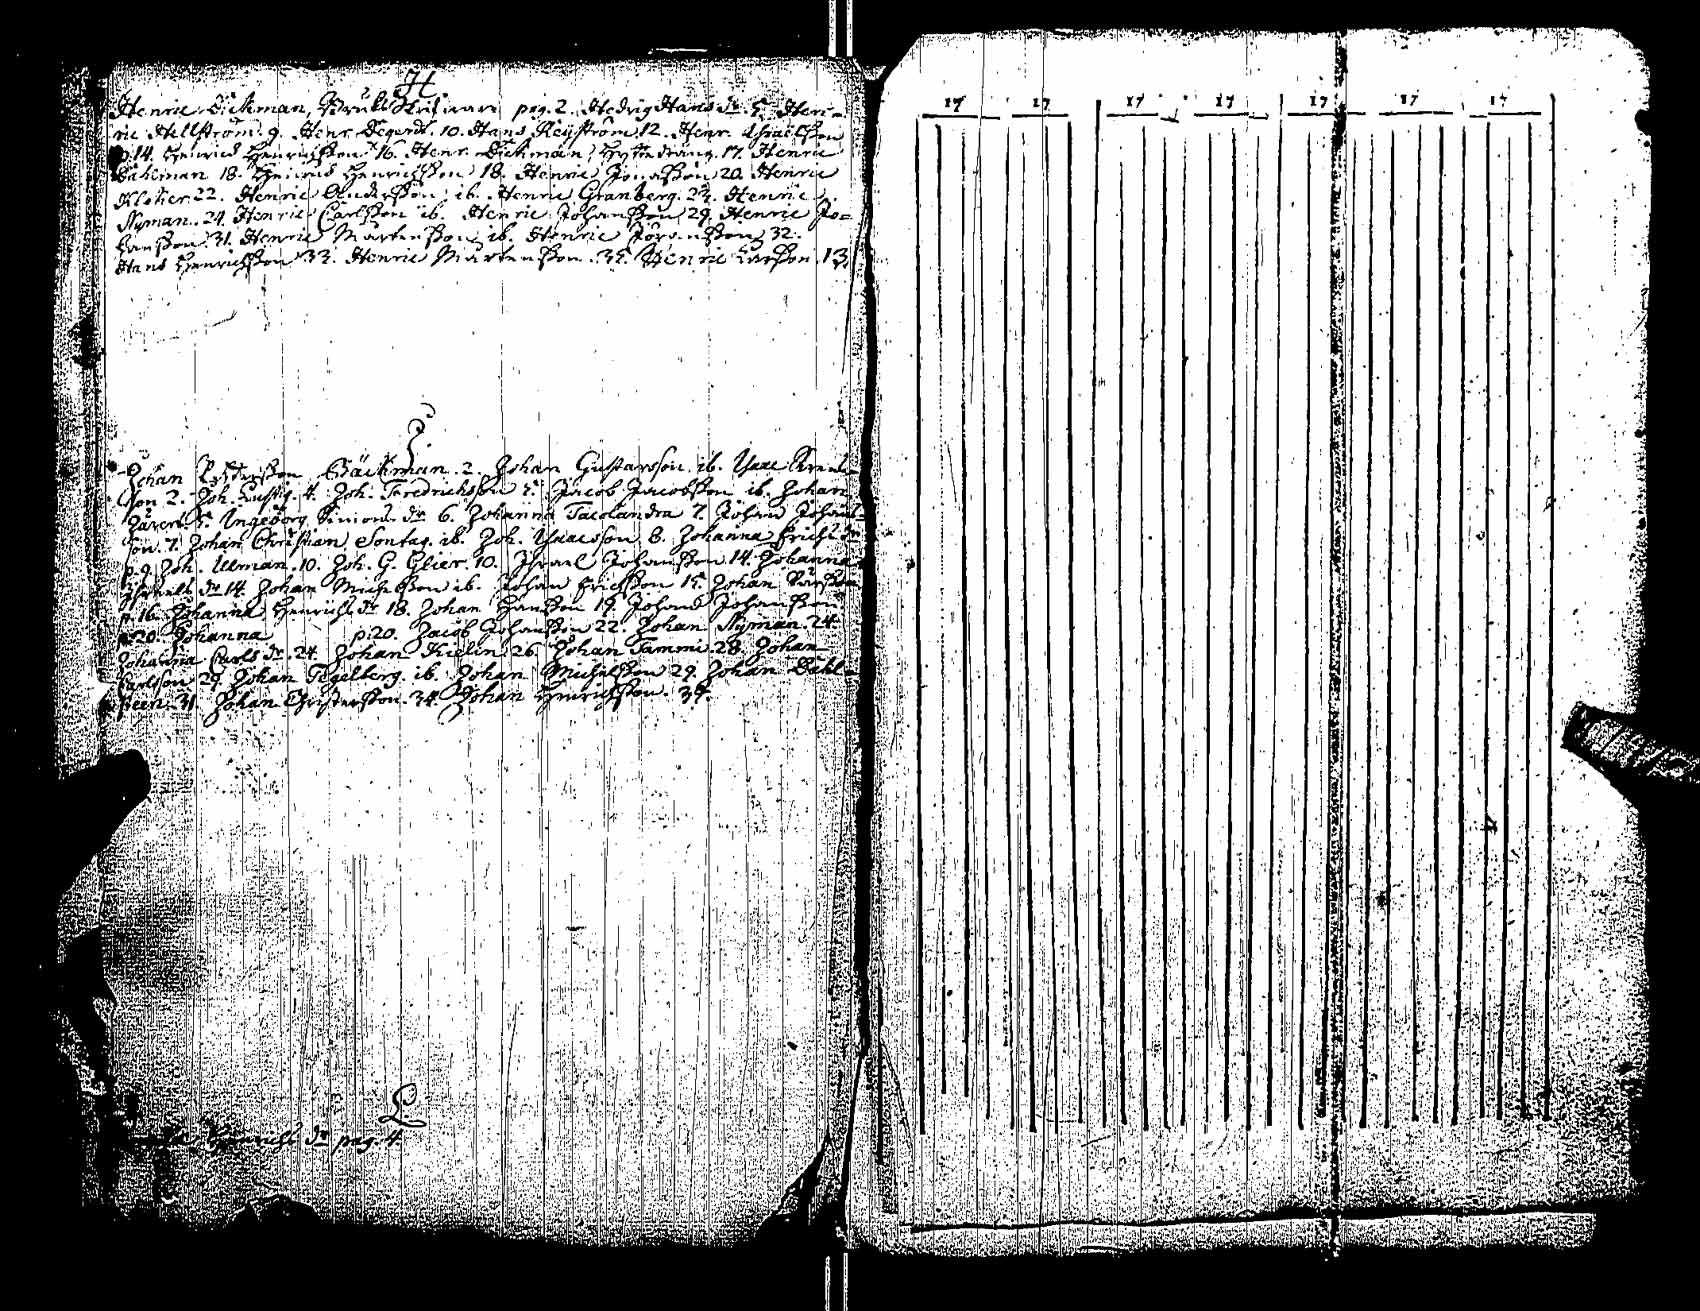 H
Henric Dickman, pag. 2. Hedrig Hans dr. 5. Hen-
ric Hellström. 9. Henr. Degerdt. 10. Hans Reyström. 12. Henr. Israelsson
p. 14. Henrich Henrichsson 16. Henr. Dickman, Hyttedräng. 17. Henric
Dahlman 18. Henrich Henrichsson 18. Henric Jonasson 20. Henric
Klöfver. 22. Henric Andersson ib. Henric Granberg. 24. Henric
Nyman. 24 Henric Carlsson ib. Henric Johansson 29. Henric Jo=
hansson. 31. Henric Mårtensson ib. Henric Jöransson 32.
Hans Henrichsson 33. Henric Mårtensson. 35. Henric Larsson. 13
I.
Johan Bäckman. 2. Johan Gustavsson. ib. Isaac
son 2. Joh. Lustig. 4. Joh. Fredrichsson 5. Jacob Jacobsson ib. Johan
5. Ingeborg Simons dr 6. Johanna 7. Johan Johans-
son. 7. Johan Christian Sontag. ib. Joh. Isaacsson. 8. Johanna Erichs dr
p. 9. Joh. Ullman. 10. Joh. G. Glier. 10. Israel Johansson 14. Johanna
Israels dr 14. Johan Michelsson ib. Johan Erichsson 15. Johan Larsson
p. 16. Johanna Henrichs dr 18. Johan Hansson 19. Johan Johansson
p. 20. Johanna p. 20. Jacob Johansson 22. Johan Nyman. 24.
Johanna Carls dr. 24. Johan Kielin 26. Johan Tammi 28. Johan
Carlsson 29. Johan Tegelberg. ib. Johan Michelsson 29. Johan Dahl-
steen. 31. Johan Christersson. 34. Johan Henrichsson. 34.
L
Henrichs dr pag. 4.
17 17 17 17 17 17 17